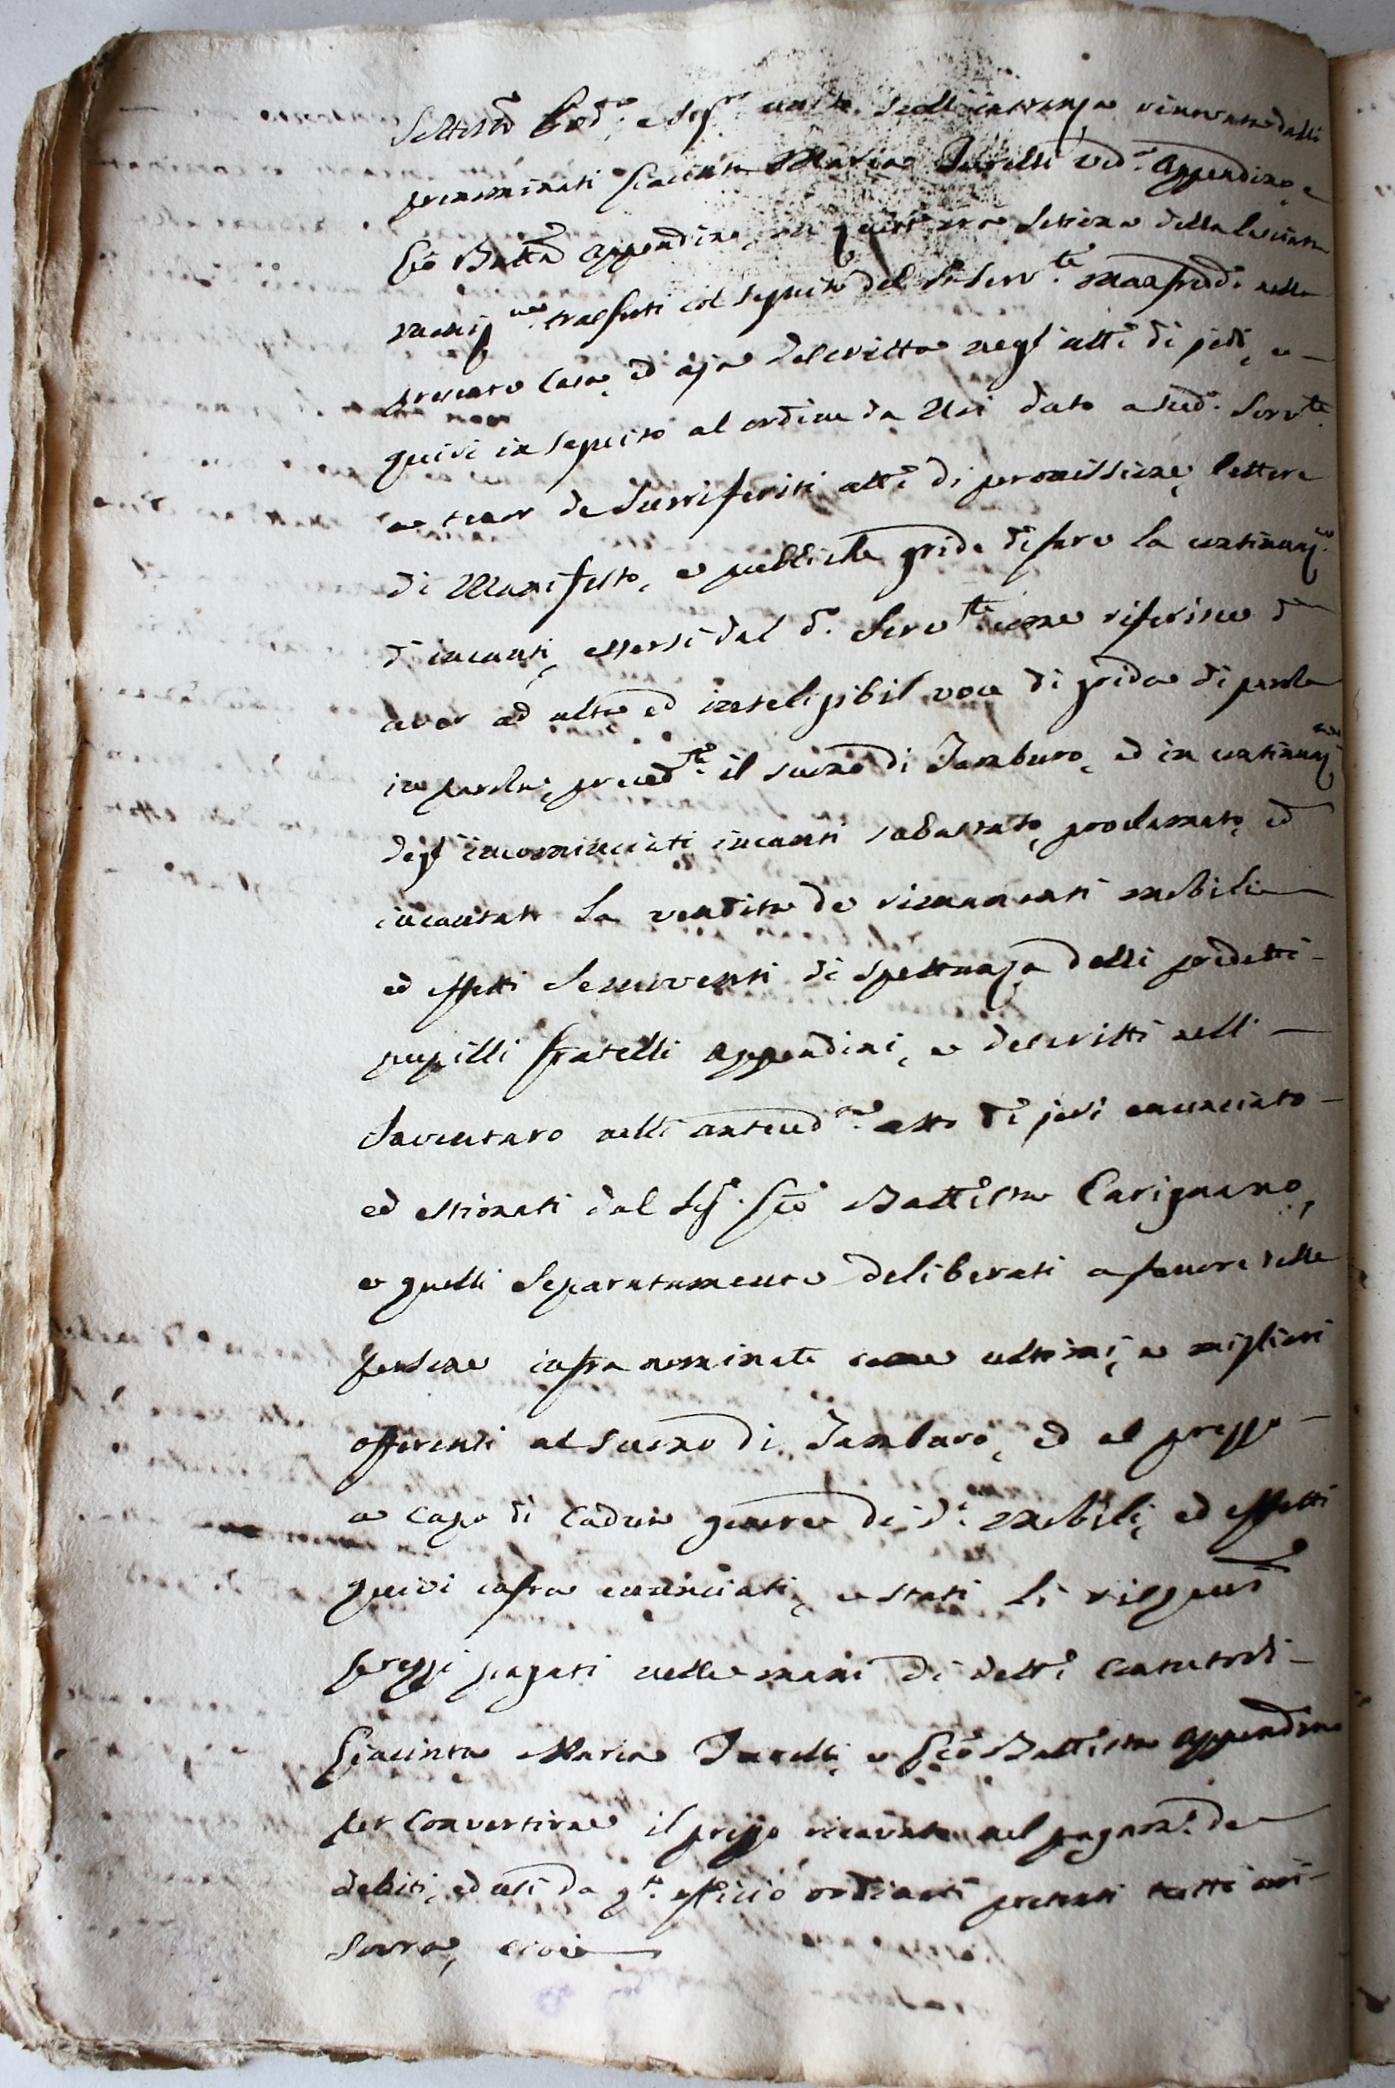 prenominati Giacinta Maria Turelli Ved.ª Appendino, e
Gio Batta Appendino,
trasferti col seguito del Sr Serv.te Manfredi nella
casa, ed aja descritta negl'atti di jeri, e
quivi in seguito al ordine da Noi dato a sud.º Serv.te
a tenor de surriferiti atti di permissione, lettere
di Manifesto, e pubbliche gride di fare la continuaz.ne
d'incanti, essersi dal d.º Serv.te come riferisce d'
aver ad alta ed inteligibil voce di grida di parola
in parola, preced.te il suono di Tamburo, ed in continuaz.ne
degl'incominciati incanti subastato, proclamato, ed
incantato la vendita de rimanenti mobili
ed effetti semoventi di spettanza delli predetti
pupilli fratelli Appendini, e descritti nell
Inventaro nelli anteced.te atto di jeri enunciato
ed estimati dal Sig.r Gio Battista Carignano,
e quelli separatamente deliberati a favore delle
persone infra nominate come ultimi, e migliori
offerenti al suono di Tamburo, ed al prezzo
a capo di cadun genere de d.i mobili, ed effetti
quivi infra enunciati, e stati li rispett.i
prezzi pagati nelle mani di detti Contutori
Giacinta Maria Turelli, e Gio Battista Appendino
per convertirne il prezzo ricavato nel pagam.to de
debiti, ed usi da q.to officio ordinati presenti tutti ivi
sovra, cioè